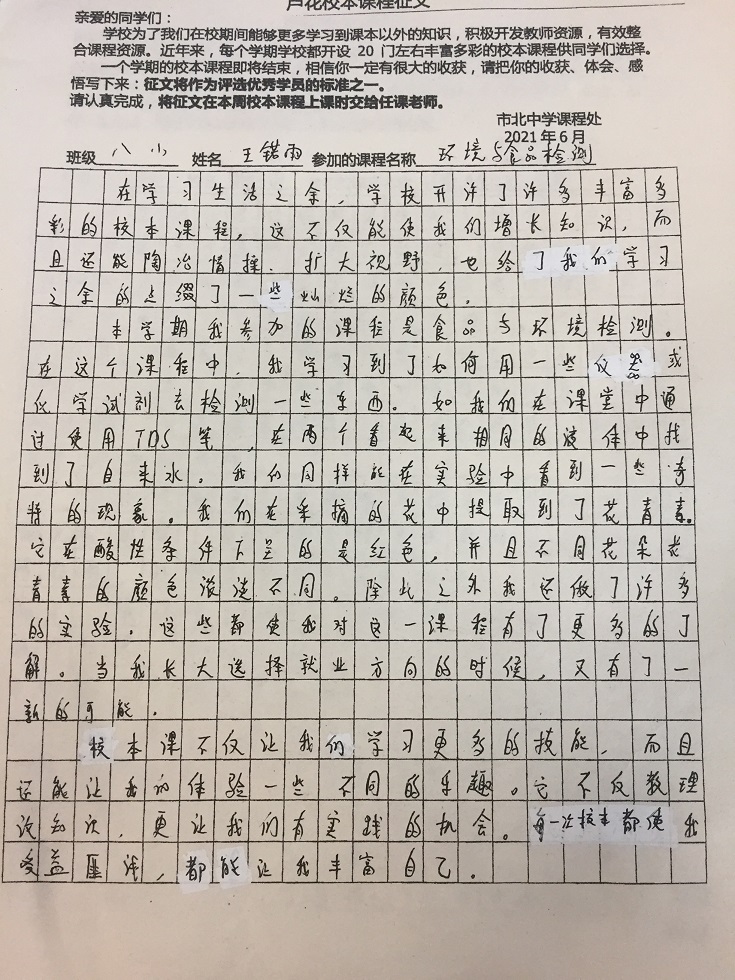 芦花校本课程征文
亲爱的同学们：
学校为了我们在校期间能够更多学习到课本以外的知识，积极开发教师资源，有效整
合课程资源。近年来，每个学期学校都开设 20 门左右丰富多彩的校本课程供同学们选择。
一个学期的校本课程即将结束，相信你一定有很大的收获，请把你的收获、体会、感
悟写下来：征文将作为评选优秀学员的标准之一。
请认真完成，将征文在本周校本课程上课时交给任课老师。
市北中学课程处
2021 年 6 月
班级 八小 姓名 王锴雨 参加的课程名称 环境与食品检测
在学习生活之余，学校开许了许多丰富多
彩的校本课程，这不仅能使我们增长知识，而
且还能陶冶情操，扩大视野，也给了我们学习
之余的点缀了一些灿烂的颜色。
本学期我参加的课程是食品与环境检测。
在这个课程中，我学习到了如何用一些仪器或
化学试剂去检测一些东西。如我们在课堂中通
过使用TDS笔，在两个看起来相同的液体中找
到了自来水。我们同样能在实验中看到一些奇
特的现象。我们在采摘的花中提取到了花青素。
它在酸性条件下呈的是红色，并且不同花朵花
青素的颜色浓淡不同。除此之外我还做了许多
的实验。这些都使我对这一课程有了更多的了
解。当我长大选择就业方向的时候，又有了一
新的可能。
校本课不仅让我们学习更多的技能，而且
还能让我们体验一些不同的乐趣。它不仅教理
论知识，更让我们有实践的机会。每一次校本都使我
受益匪浅，都能让我丰富自己。